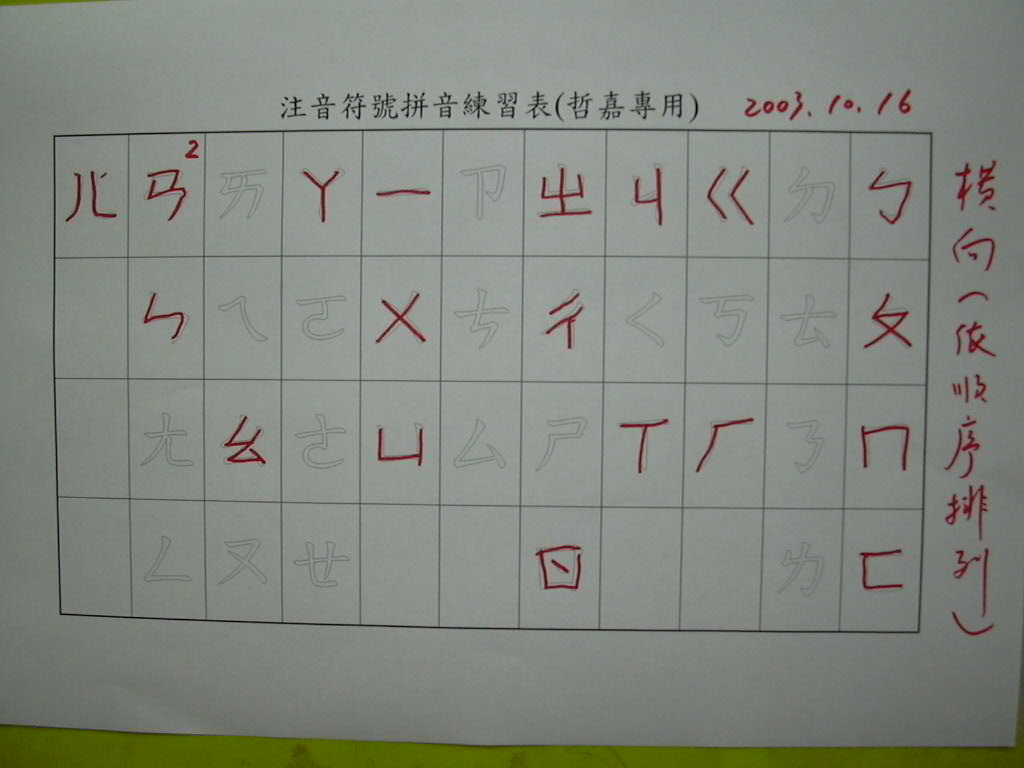 注音符號拼音練習表(哲嘉專用) 2003.10.16
2
ㄦ ㄢ ㄞ ㄚ ㄧ ㄗ ㄓ ㄐ ㄍ ㄉ ㄅ
ㄣ ㄟ ㄛ ㄨ ㄘ ㄔ ㄑ ㄎ ㄊ ㄆ
ㄤ ㄠ ㄜ ㄩ ㄙ ㄕ ㄒ ㄏ ㄋ ㄇ
ㄥ ㄡ ㄝ ㄖ ㄌ ㄈ
橫向(依順序排列)